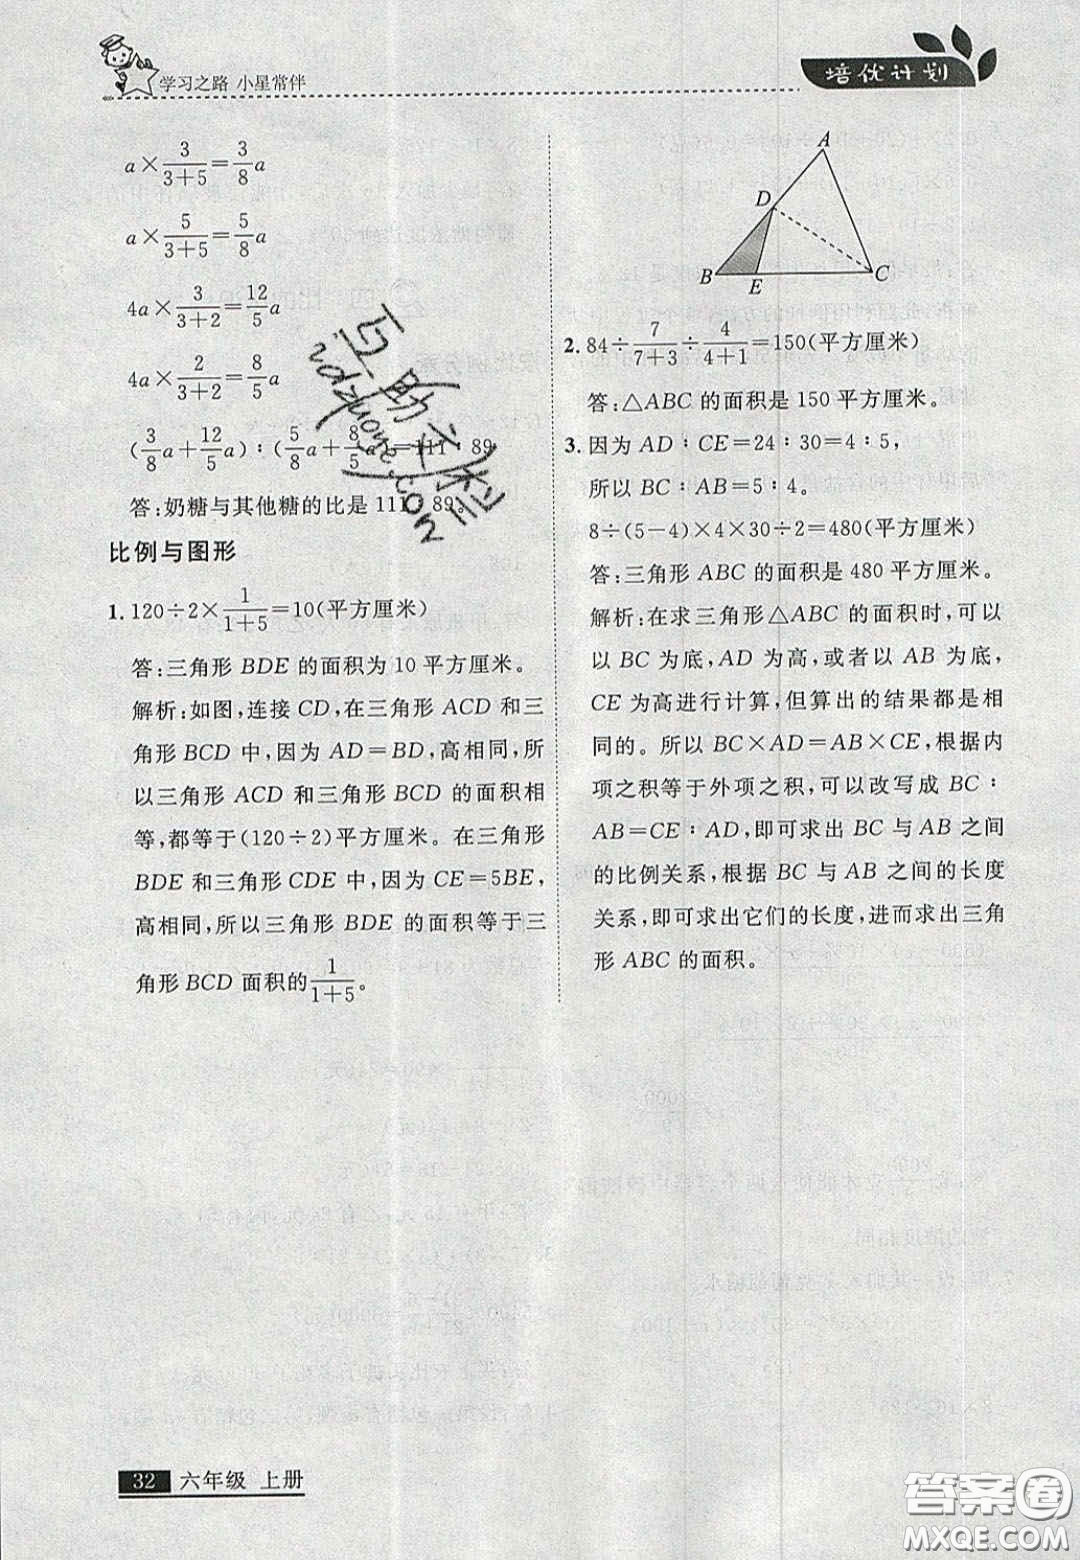 学习之路 小星常伴
培优计划
a×3/(3+5)=3/8a
a×5/(3+5)=5/8a
4a×3/(3+2)=12/5a
4a×2/(3+2)=8/5a
(3/8a+12/5a)∶(5/8a+8/5a)=111∶89
答:奶糖与其他糖的比是111∶89。
比例与图形
1. 120÷2×1/(1+5)=10(平方厘米)
答:三角形BDE的面积为10平方厘米。
解析:如图,连接CD,在三角形ACD和三
角形BCD中,因为AD=BD,高相同,所
以三角形ACD和三角形BCD的面积相
等,都等于(120÷2)平方厘米。在三角形
BDE和三角形CDE中,因为CE=5BE,
高相同,所以三角形BDE的面积等于三
角形BCD面积的1/(1+5)。
A
D
B
E
C
2. 84÷7/(7+3)÷4/(4+1)=150(平方厘米)
答:△ABC的面积是150平方厘米。
3. 因为AD∶CE=24∶30=4∶5,
所以BC∶AB=5∶4。
8÷(5-4)×4×30÷2=480(平方厘米)
答:三角形ABC的面积是480平方厘米。
解析:在求三角形△ABC的面积时,可以
以BC为底,AD为高,或者以AB为底,
CE为高进行计算,但算出的结果都是相
同的。所以BC×AD=AB×CE,根据内
项之积等于外项之积,可以改写成BC∶
AB=CE∶AD,即可求出BC与AB之间
的比例关系,根据BC与AB之间的长度
关系,即可求出它们的长度,进而求出三角
形ABC的面积。
32 六年级 上册
答案圈
MXQE.COM